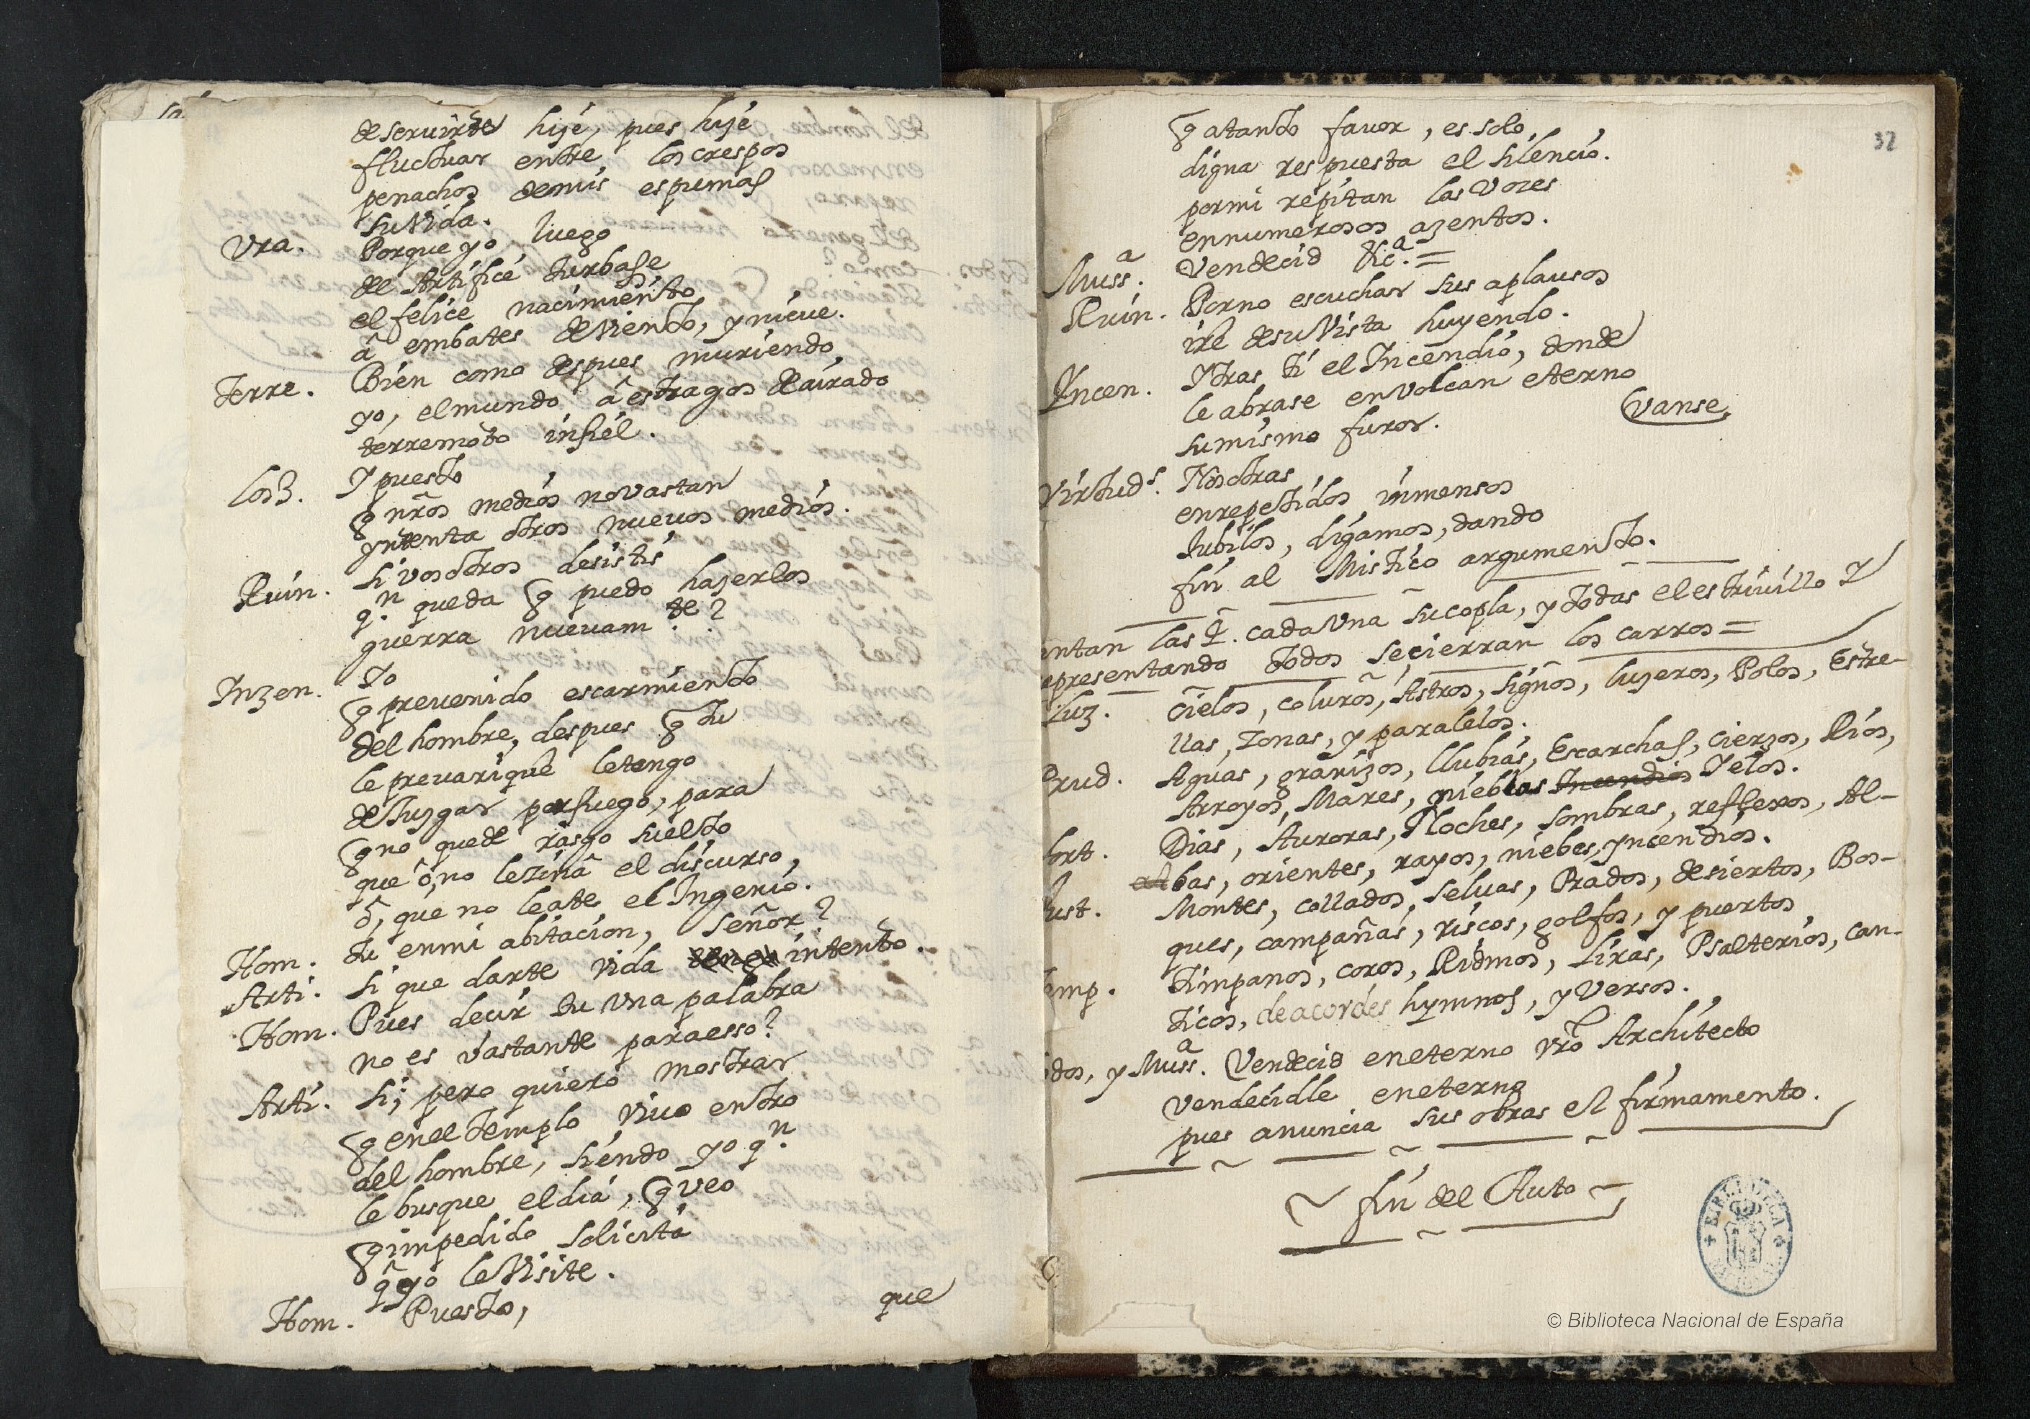 de servirte hizé, pues hizé
fluctuar entre los crespos
penachos demis espumas
su Vida.
Vra. Porque yo luego
del Artifice turbase
el felice nacimiento
â embates de viento, y nieue.
Terre. Bien como despues muriendo
yo, el mundo â estragos deairado
terremoto infiel.
Los 3. Y puesto
q nr̃os medios no vastan
yntenta otros nueuos medios.
Ruin. si vosotros desistis
q.n queda q puedo hazerlos
guerra nueuam.te?
Inzen. Yo
q preuenido escarmiento
del hombre, despues q tu
le prevariquê le tengo
de Juzgar por fuego, para
q no quede rasgo suelto
que ô, no lezina el discurso,
ô, que no le ate el Ingenio.
Hom. tu en mi abitacion, señor?
Arti. si que darte vida intento.
Hom. Pues decir tu una palabra
no es vastante paraesso?
Arti. si; pero quiero mostrar
q en el templo viuo entro
del hombre, siendo yo q.n
le busque el dia, q veo
q impedido solicita
q̃ yo le Visite.
Hom. Puesto,
que
32
q atanto favor, es solo,
digna respuesta el silencio.
por mi repitan las Vozes
en numerosos azentos.
Muss.a Vendecid &c.a =
Ruin. Porno escuchar sus aplausos
iré desu Vista huyendo.
Incen. Ytras ti el Incendio, donde
le abrase en volcan eterno
su mismo furor.
Vanse,
Virtud.s Nosotras
en repetidos inmensos
Jubilos, digamos, dando
fin al Mistico argumento.
ntan las 4. cada Vna su copla, y todas el estriuillo Y
epresentando todos se cierran los carros =
Luz. Cielos, coluros, Astros, signos, luzeros, Polos, Estre-
llas, zonas, y paralelos.
Prud. Aguas, granizos, llubias, Escarchas, cierzos, Rios,
Arroyos, Mares, nieblas Incendios Yelos.
fort. Dias, Auroras, Noches, sombras, reflexos, Al-
bas, orientes, rayos, niebes, yncendios.
Just. Montes, collados, seluas, Prados, desiertos, Bos-
ques, campañas, riscos, golfos, y puertos
emp. timpanos, coros, Ridmos, liras, Psalterios, can-
ticos, de acordes hymnos, y Versos.
dos, y Muss.a Vendecid en eterno vr̃o Architecto
Vendecidle en eterno
pues anuncia sus obras el firmamento.
fin del Auto
BIBLIOTECA
© Biblioteca Nacional de España